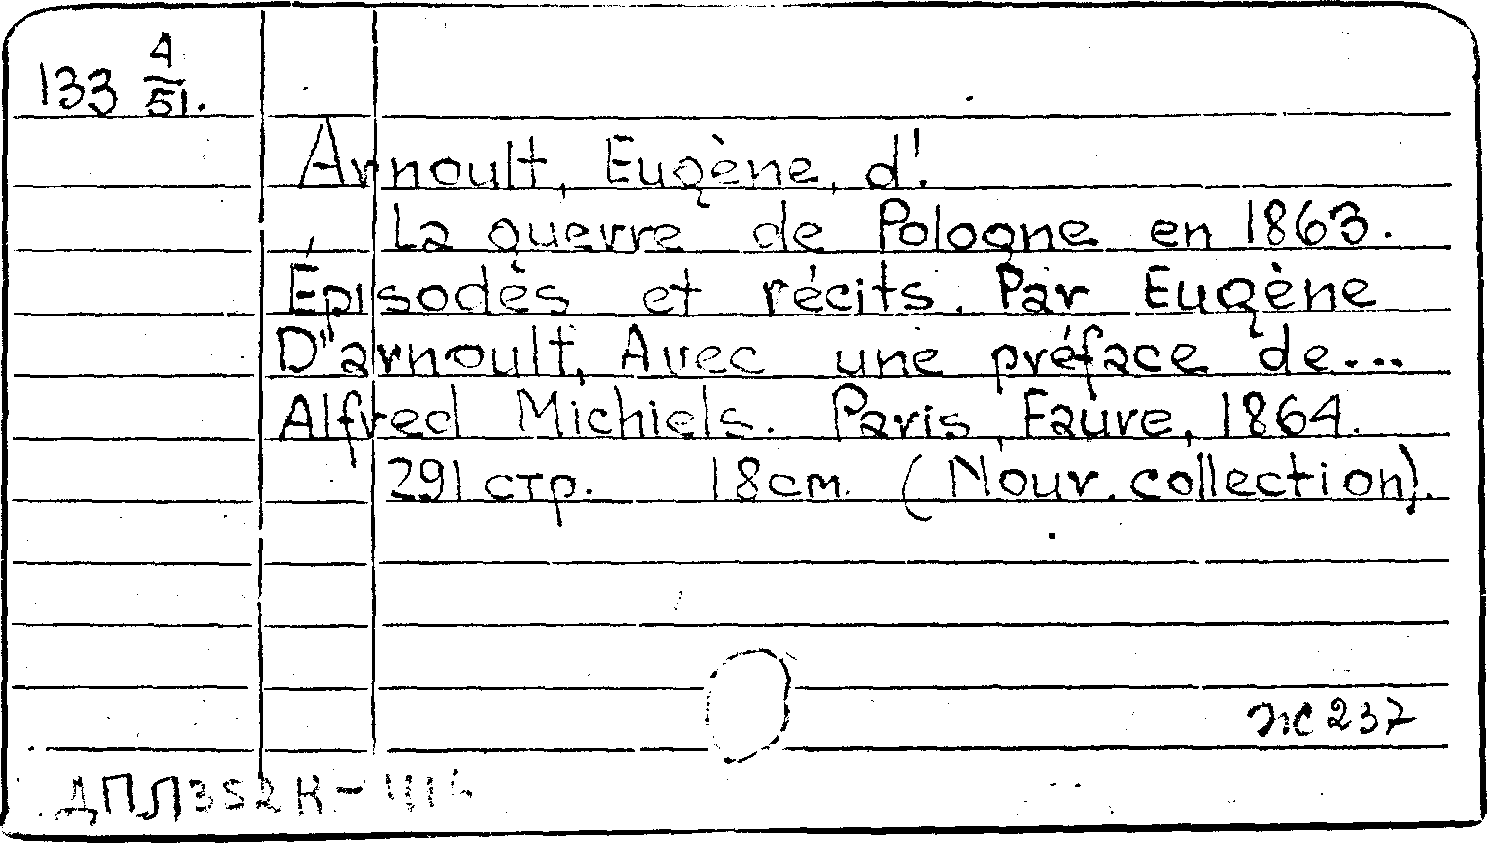 133 4/51.
Arnoult, Eugène, d'.
La guerre de Pologne en 1863.
Épisodès et récits. Par Eugène
D"arnoult, Avec une préface de...
Alfred Michiels. Paris, Faure, 1864.
291 стр. 18 cm. (Nouv. collection).
нс 237
ДПЛ352К-